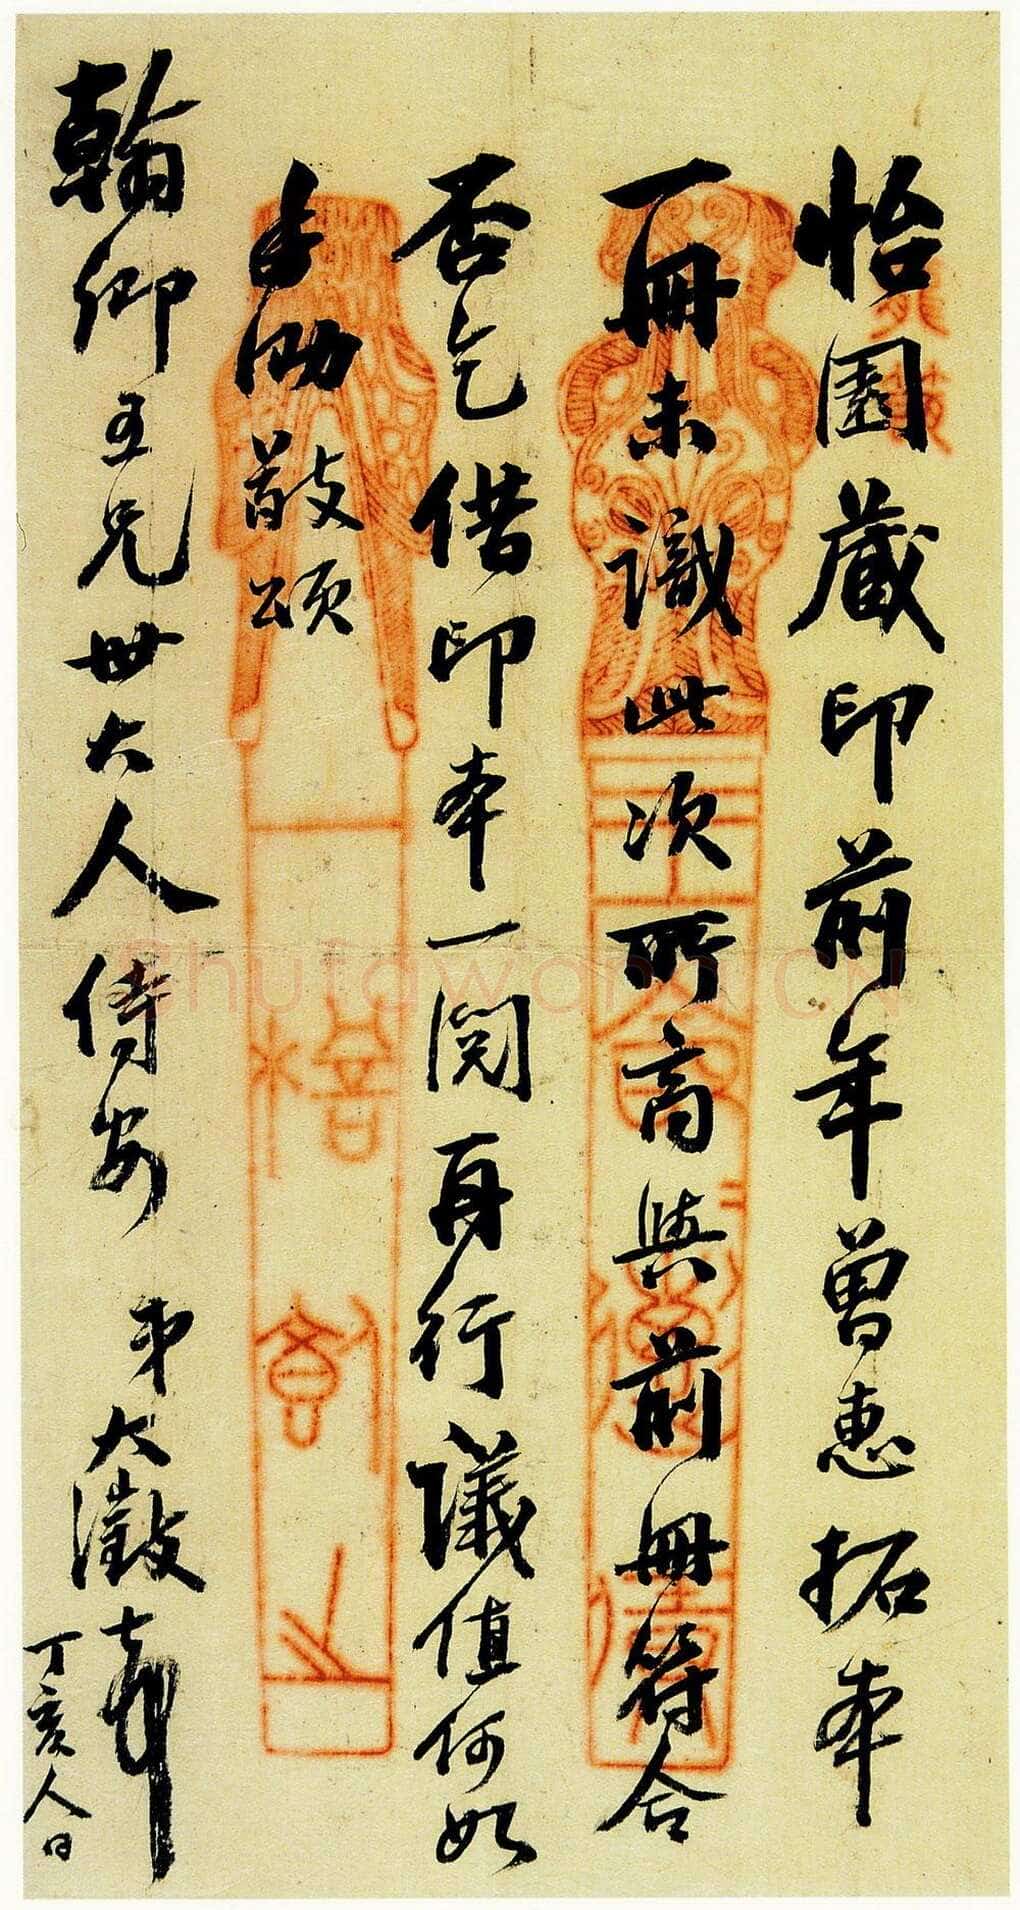 怡園藏印前年曾惠拓本
一冊未識此次所商與前冊符合
否乞借印本一閱再行議值何如
手泐敬頌
翰卿五兄世大人侍安
弟大澂頓首
丁亥人日